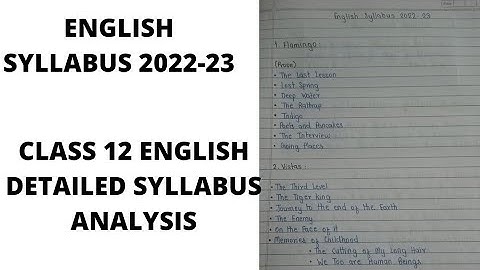 ENGLISH
SYLLABUS 2022-23
CLASS 12 ENGLISH
DETAILED SYLLABUS
ANALYSIS
English Syllabus 2022-23
1. Flamingo:
(Prose)
• The Last Lesson
• Lost Spring
• Deep Water
• The Rattrap
• Indigo
• Poets and Pancakes
• The Interview
• Going Places
2. Vistas:
• The Third Level
• The Tiger King
• Journey to the end of the Earth
• The Enemy
• On the Face of it
• Memories of Childhood
• The Cutting of My Long Hair
• We Too are Human Beings